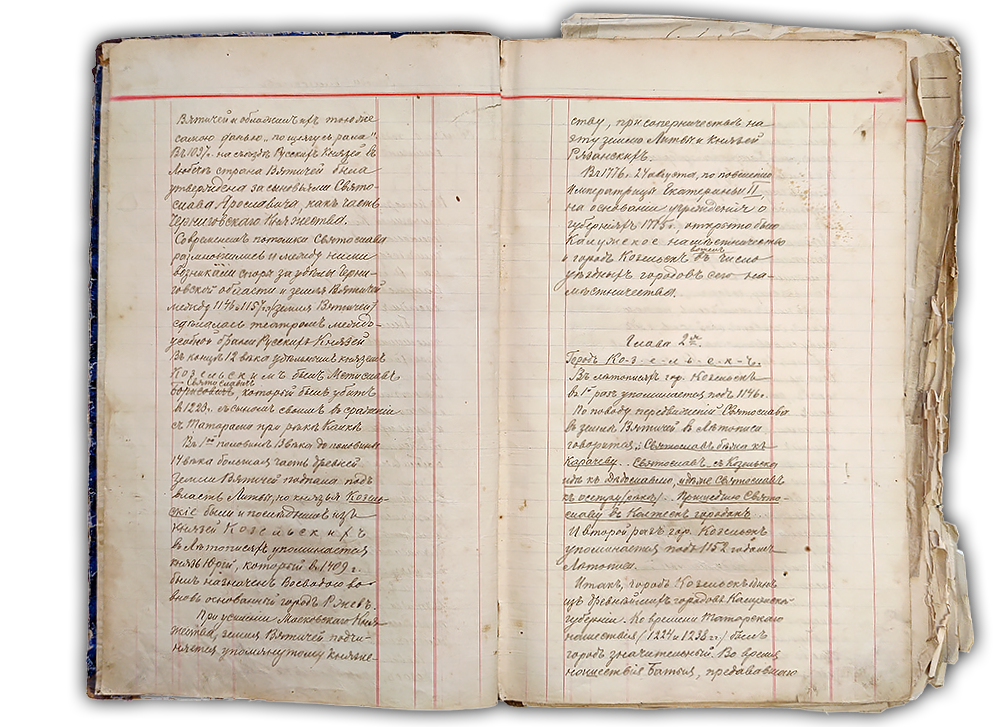 Вятичей и обложилъ ихъ тоюже
самою данью „по щлягу съ рала"
Въ 1097 г. на съездѣ Русскихъ Князей въ
Любечѣ страна Вятичей была
утверждена за сыновьями Свято-
слава Ярославича, какъ часть
Черниговскаго Княжества.
Современемъ потомки Святослава
размножились и между ними
возникали споры за удѣлы Черни-
говской области и земля Вятичей
между 1146 и 1157 гг (земля Вятичей)
сдѣлалась театромъ между-
усобной брани Русскихъ Князей
Въ концѣ 12 вѣка удѣльнымъ княземъ
Козельскимъ былъ Мстиславъ
Святославичъ
Борисовичъ, который былъ убитъ
въ 1223 г. съ сыномъ своимъ въ сраженіи
съ Татарами при рѣкѣ Калкѣ
Въ 1ой половинѣ 13 вѣка до половины
14 вѣка большая часть древней
Земли Вятичей подпала подъ
власть Литвы, но князья Козель-
скіе были и послѣднимъ изъ
князей Козельскихъ
въ Лѣтописяхъ упоминается
князь Юрій, который въ 1409 г.
былъ назначенъ Воеводою во
вновь основанный городъ Ржевъ.
При усиленіи Московскаго Кня-
жества, земля Вятичей подчи-
няется упомянутому княже-
ству, при соперничествѣ на
эту землю Литвы и князей
Рязанскихъ.
Въ 1776 г. 24 августа, по повелѣнію
Императрицы Екатерины II
на основаніи учрежденія о
губерніяхъ 1775 г., открыто было
Калужское намѣстничество
вошелъ
и городъ Козельскъ въ число
уѣздныхъ городовъ сего на-
мѣстничества.
Глава 2ая
Городъ Козельскъ.
Въ лѣтописяхъ гор. Козельскъ
въ 1й разъ упоминается подъ 1146 г.
По поводу передвиженій Святослава
въ земляхъ Вятичей въ лѣтописи
говорится: Святославъ бѣжа къ
Карачеву.. Святославъ съ Козельска
иде къ Дѣдославлю, идѣже Святославъ
къ осетру (рѣкѣ).. Пришедшю Свято-
славу въ Колтескъ городокъ...
И второй разъ гор. Козельскъ
упоминается подъ 1152 годомъ
Лѣтописи.
Итакъ, городъ Козельскъ одинъ
изъ древнѣйшихъ городовъ Калужской
губерніи. Ко времени Татарскаго
нашествія (1224 и 1238 гг) былъ
городъ значительный. Во время
нашествія Батыя, предававшаго